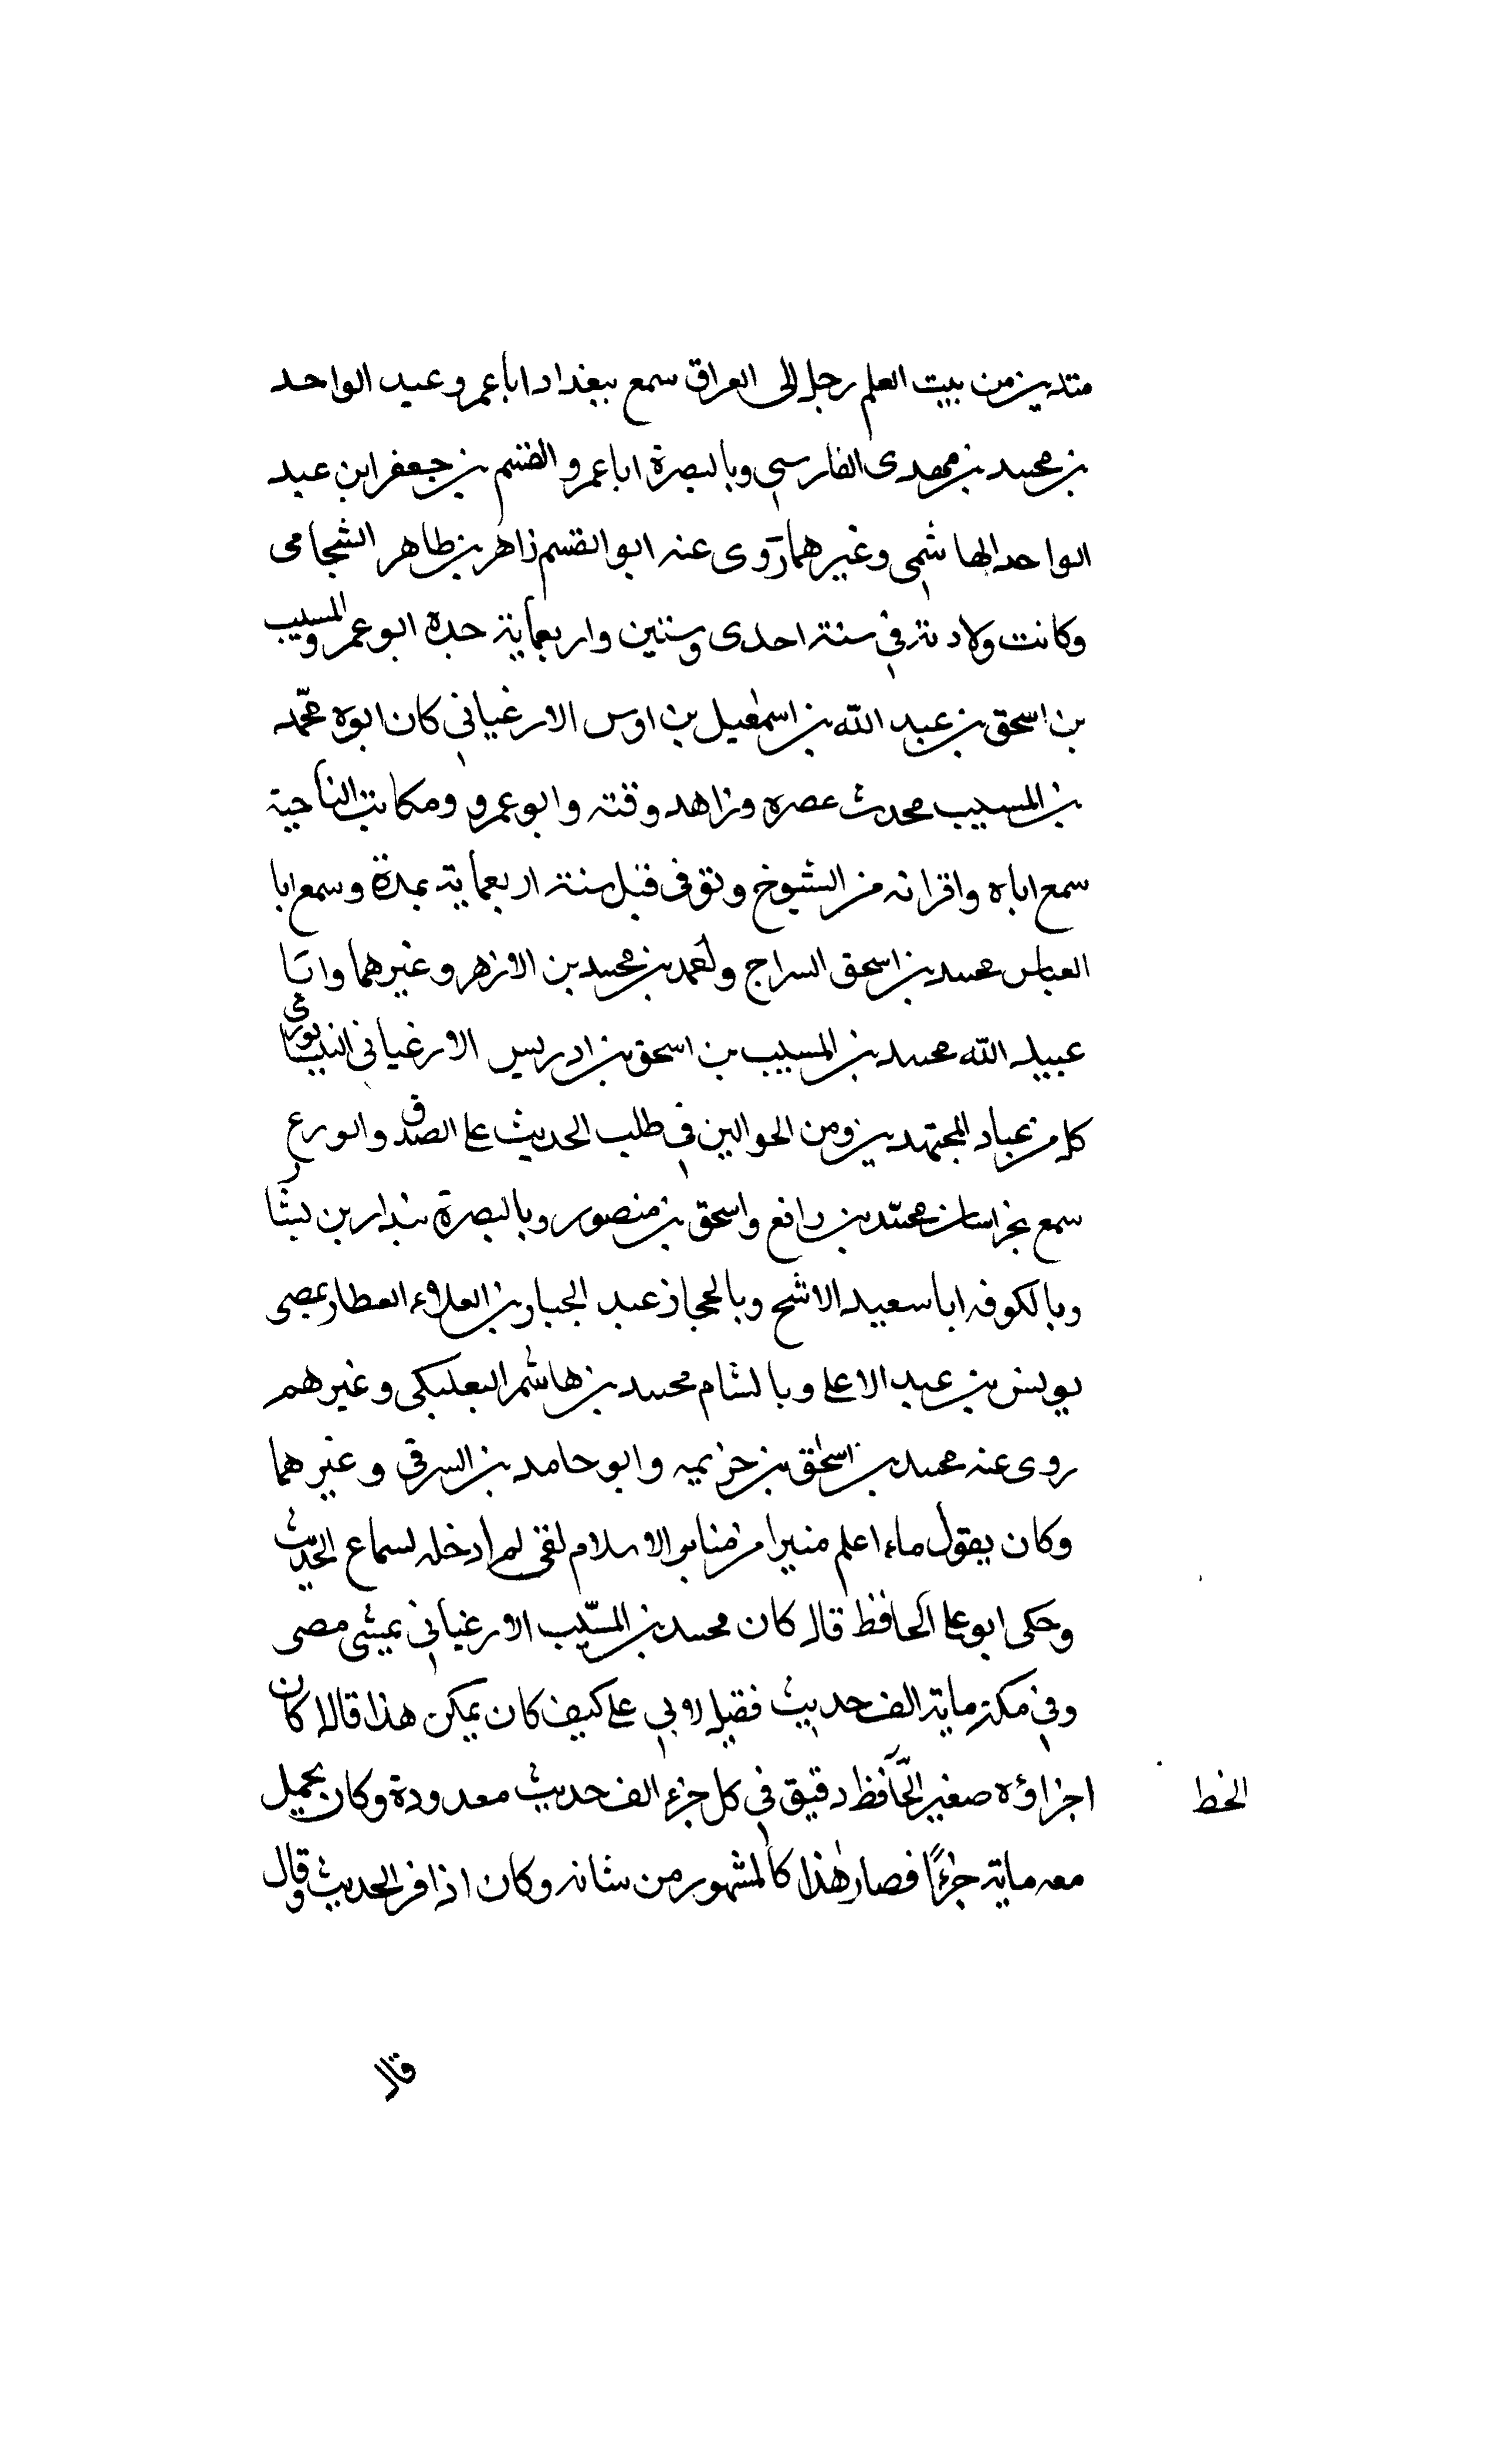 متدين من بيت العلم رحل الى العراق سمع ببغداد اباعمرو عبد الواحد
بن محمد بن مهدى الفارسي وبالبصرة اباعمرو القسم بن جعفر ابن عبد
الواحد الهاشمي وغيرهما روى عنه ابو القسم زاهر بن طاهر الشجامى
وكانت ولادته في سنة احدى وستين واربعماية جده ابو عمرو المسيب
بن اسحق بن عبد الله بن اسمعيل بن اوس الارغياني كان ابوه محمد
بن المسيب محدث عصره وزاهد وقته وابو عمرو ومكانت الناحية
سمع اباه واقرانه من الشيوخ وتوفى قبل سنة اربعماية بمدة وسمع ابا
العباس محمد بن اسحق السراج واحمد بن محمد بن الازهر وغيرهما وابا
عبيد الله محمد بن المسيب بن اسحق بن ادريس الارغياني النيسابوري
كان من عباد المجتهدين ومن الجوالين في طلب الحديث على الصدق والورع
سمع بخراسان محمد بن رافع واسحق بن منصور وبالبصرة بندار بن بشار
وبالكوفه اباسعيد الاشج وبالحجاز عبد الجبار بن العلاء العطار بمصى
يونس بن عبد الاعلى وبالشام محمد بن هاشم البعلبكى وغيرهم
روى عنه محمد بن اسحق بن خزيمه وابو حامد بن السرقي وغيرهما
وكان يقول ماء اعلم منبرا من منابر الاسلام لفى لم ادخله لسماع الحديث
وحكى ابو على الحافظ قال كان محمد بن المسيب الارغياني يمشى مصى
وفي مكة ماية الف حديث فقيل لابي على كيف كان يمكن هذا قال كان
اجزاؤه صغير الحافظ دقيق في كل جزء الف حديث معدودة وكان يحمل
الخط
معه ماية جزءًا فصار هذا كالمشهور من شانه وكان اذا قر الحديث وقال
قال